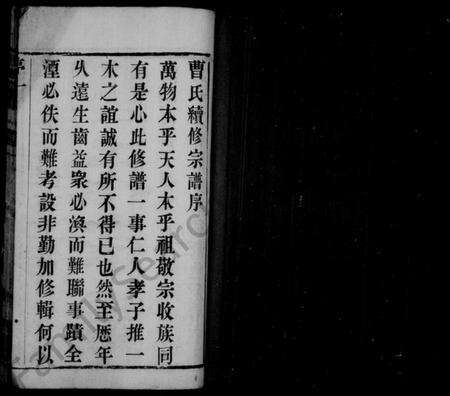 曹氏續修宗譜序
萬物本乎天人本乎祖敬宗收族同
有是心此修譜一事仁人孝子推一
木之誼誠有所不得已也然至厯年
久遠生齒益衆必渙而難聯事蹟全
湮必佚而難考設非勤加修輯何以
序一
FamilySearch